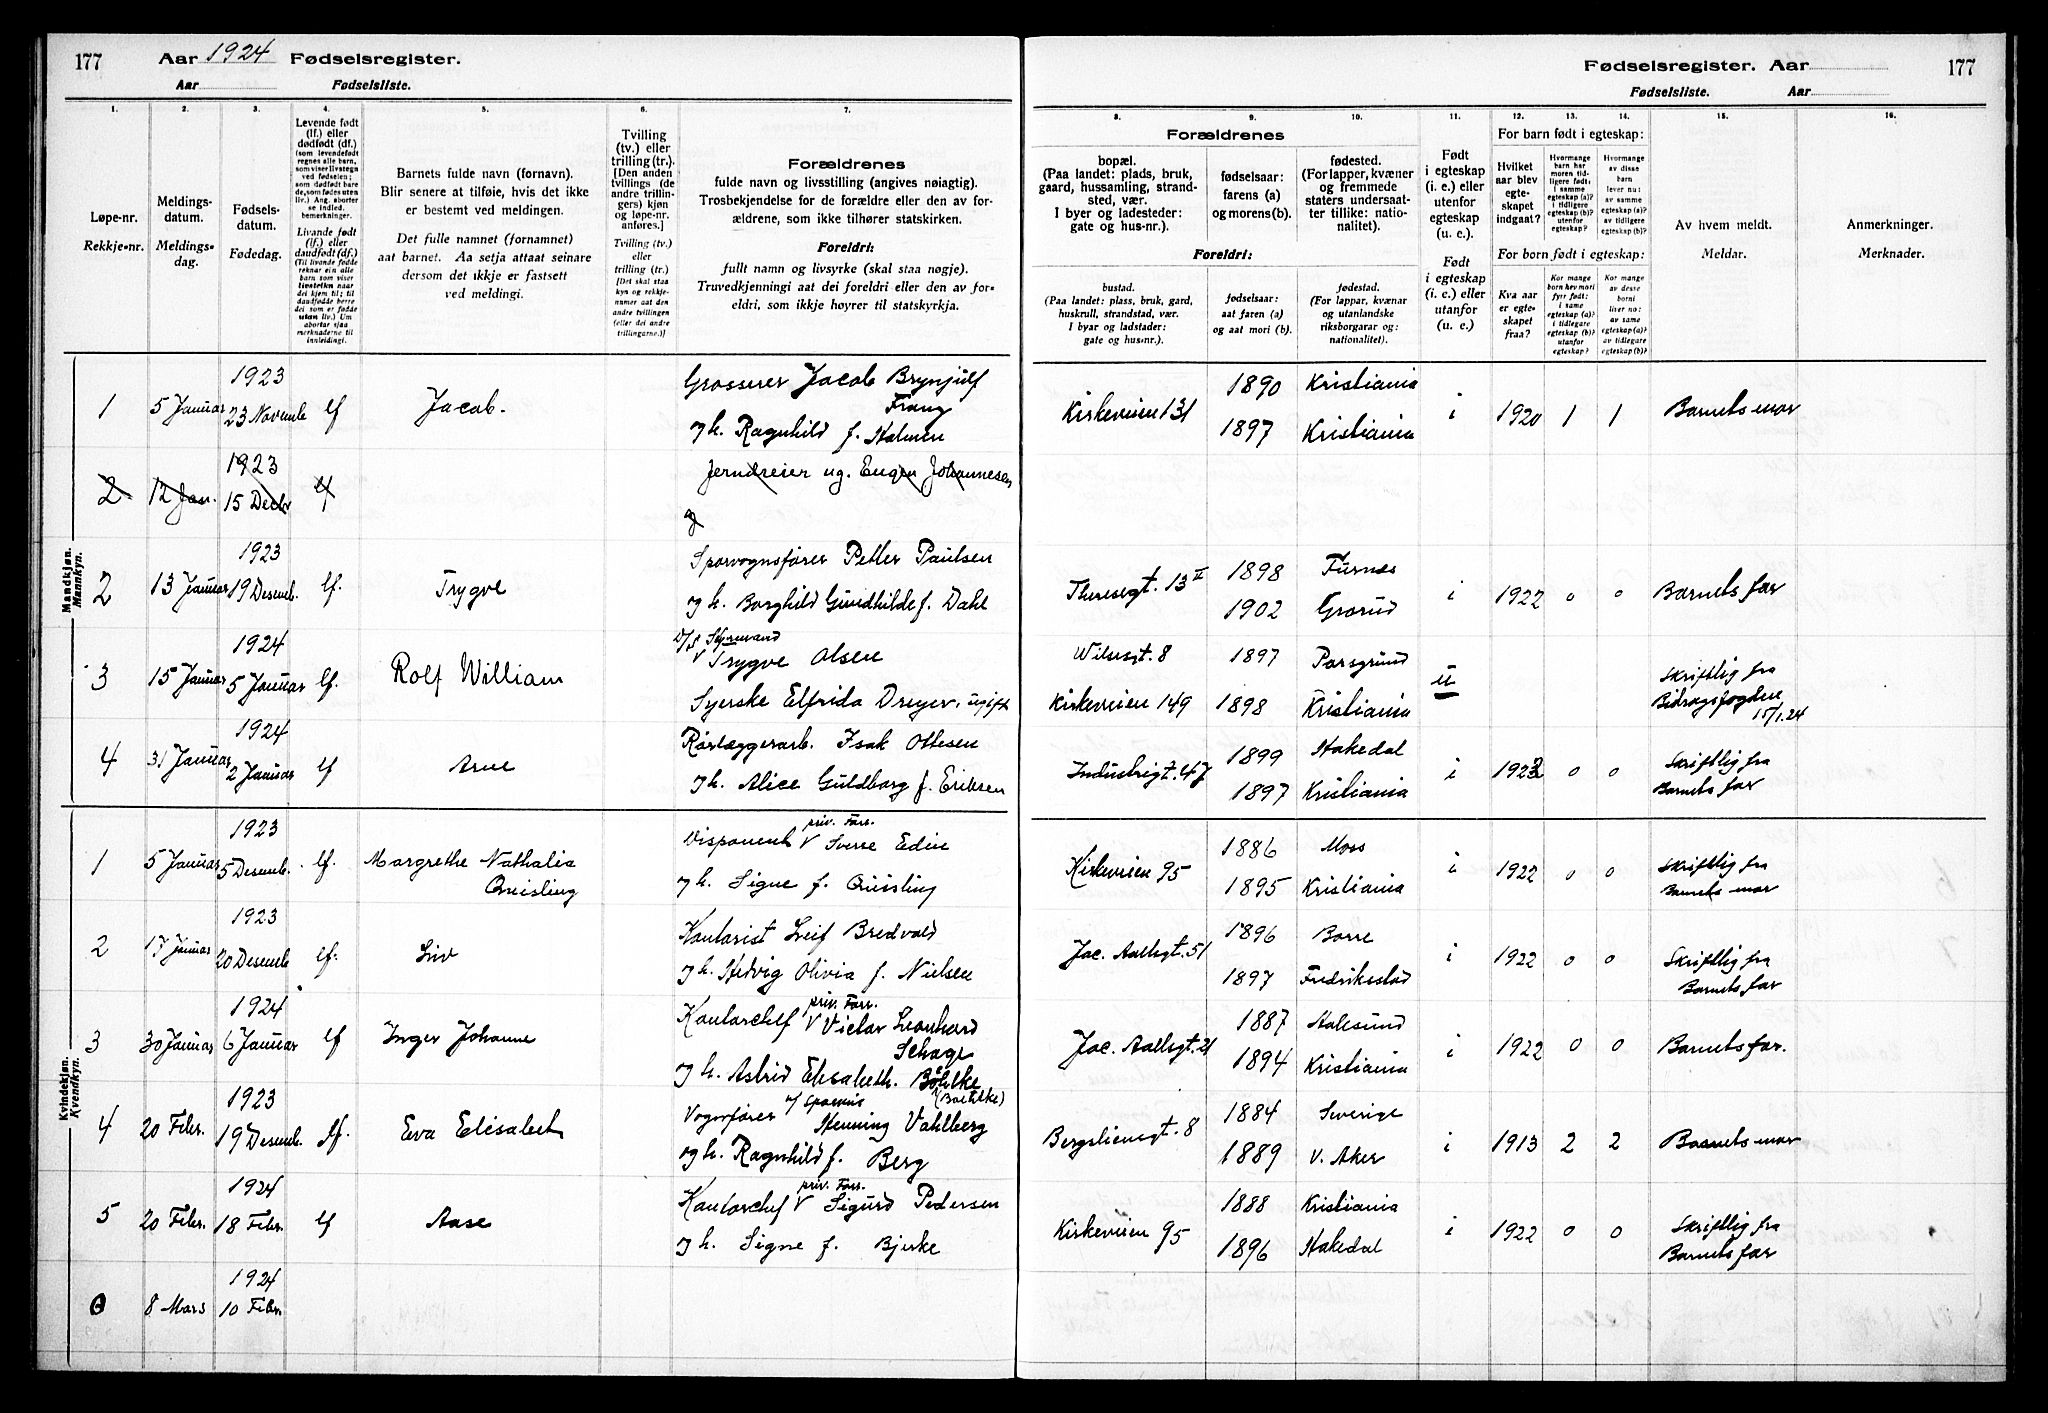 177 Aar 1924 Fødselsregister.
Aar Fødselsliste.
Fødselsregister. Aar 177
Fødselsliste. Aar
1. 2. 3. 4. 5. 6. 7.
8. 9. 10. 11. 12. 13. 14. 15. 16.
Løpe-nr.
Rekkje-nr.
Meldings-
datum.
Meldings-
dag.
Fødsels-
datum.
Fødedag.
Levende født
(lf.) eller
dødfødt (df.)
(som levendefødt
regnes alle barn,
som viser livstegn
ved fødselen;
som dødfødt bare
de, som fødes uten
liv.) Ang. aborter
se indled.
bemerkninger.
Livande født
(lf.) eller
daudfødt (df.)
(Til livande fødde
reknar ein alle
barn som viser
livsteikn naar
dei kjem til; til
daudfødde berre
dei som er fødde
utan liv.) Um
abortar sjaa
merknaderne til
innleidingi.
Barnets fulde navn (fornavn).
Blir senere at tilføie, hvis det ikke
er bestemt ved meldingen.
Det fulle namnet (fornamnet)
aat barnet. Aa setja attaat seinare
dersom det ikkje er fastsett
ved meldingi.
Tvilling
(tv.) eller
trilling (tr.).
[Den anden
tvillings (de
andre trillin-
gers) kjøn
og løpe-nr.
anføres.]
Tvilling (tv.)
eller
trilling (tr.)
[Det skal staa
kyn og rekkje-
nummer aat den
andre tvillingen
(eller dei andre
trillingarne.)]
Forældrenes
fulde navn og livsstilling (angives nøiagtig).
Trosbekjendelse for de forældre eller den av for-
ældrene, som ikke tilhører statskirken.
Foreldri:
fullt namn og livsyrke (skal staa nøgje).
Truvedkjenningi aat dei foreldri eller den av for-
eldri, som ikkje høyrer til statskyrkja.
Forældrenes
bopæl.
(Paa landet: plads, bruk,
gaard, hussamling, strand-
sted, vær.
I byer og ladesteder:
gate og hus-nr.).
fødselsaar:
farens (a)
og morens (b).
fødested.
(For lapper, kvæner
og fremmede
staters undersaat-
ter tillike: natio-
nalitet).
Foreldri:
bustad.
(Paa landet: plass, bruk, gard,
huskrull, strandstad, vær.
I byar og ladstader:
gate og hus-nr.).
fødselsaar:
aat faren (a)
og aat mori (b).
fødestad.
(For lappar, kvænar
og utanlandske
riksborgarar og:
nationalitet).
Født
i egteskap
(i. e.) eller
utenfor
egteskap
(u. e.).
Født
i egteskap
(i. e.) eller
utanfor
(u. e.)
For barn født i egteskap:
Hvilket
aar blev
egte-
skapet
indgaat?
Hvormange
barn har
moren tid-
ligere født:
i samme
egteskap (a)?
i tidligere
egteskap (b)?
utenfor
egteskap?
Hvormange
av disse
barn
lever nu:
av samme
egteskap (a)?
av tidligere
egteskap (b)?
For born født i egteskap:
Kva aar
er egte-
skapet
fraa?
Kor mange
born hev mori
fyrr født:
i same
egteskap (a)?
i tidlegare
egteskap (b)?
utanfor
egteskap?
Kor mange
av desse
borni
liver no:
av same
egteskap (a)?
av tidlegare
egteskap (b)?
Av hvem meldt.
Meldar.
Anmerkninger.
Merknader.
Mandkjøn.
Mannkyn.
1 5 Januar 1923 23 Novemb lf Jacob.
Grosserer Jacob Brynjulf
Franz
og h. Ragnhild f. Holmen
Kirkeveien 131 1890 Kristiania
1897 Kristiania i 1920 1 1 Barnets mor
2 12 Jan. 1923 15 Decbr lf
Jerndreier ug. Eugen Johannesen
og
2 13 Januar 1923 19 Desemb. lf. Trygve
Sporvognsfører Petter Paulsen
og h. Borghild Gundhilde f. Dahl
Theresegt. 13 II 1898 Furnes
1902 Grorud i 1922 0 0 Barnets far
3 15 Januar 1924 5 Januar lf. Rolf William
D/S Styrmand
Trygve Olsen
Syerske Elfrida Dreyer, ugift
Wilsesgt. 8 1897 Porsgrund
Kirkeveien 149 1898 Kristiania u
Skriftlig fra
Bidragsfogden
15/1.24
4 31 Januar 1924 2 Januar lf Arne
Rørlæggerarb. Isak Ottesen
og h. Alice Guldborg f. Eriksen
Industrigt. 47 1899 Hakedal
1897 Kristiania i 1923 0 0
Skriftlig fra
Barnets far
Kvindekjøn.
Kvendkyn.
1 5 Januar 1923 5 Desemb. lf. Margrethe Nathalia
Quisling
priv. Forr.
Disponent V Sverre Edin
og h. Signe f. Quisling
Kirkeveien 95 1886 Moss
1895 Kristiania i 1922 0 0
Skriftlig fra
Barnets mor
2 17 Januar 1923 20 Desemb lf. Liv
Kontorist Leif Bredvold
og h. Hedvig Olivia f. Nielsen
Jac. Aallsgt. 51 1896 Borre
1897 Fredriksstad i 1922 0 0
Skriftlig fra
Barnets far
3 30 Januar 1924 6 Januar lf Inger Johanne
priv. Forr.
Kontorchef V Victor Leonhard
Schage
og h. Astrid Elisabeth. Böhlke
(Boehlke)
Jac. Aallsgt. 21 1887 Aalesund
1894 Kristiania i 1922 0 0 Barnets far.
4 20 Febr. 1923 19 Desemb. lf. Eva Elisabet
Vognfører v/ Sporveis
Henning Vahlberg
og h. Ragnhild f. Berg
Bergsliensgt. 8 1884 Sverige
1889 V. Aker i 1913 2 2 Barnets mor
5 20 Febr. 1924 18 Febr. lf Aase
priv. Forr.
Kontorchef V Sigurd Pedersen
og h. Signe f. Bjerke
Kirkeveien 95 1888 Kristiania
1896 Hakedal i 1922 0 0
Skriftlig fra
Barnets far
6 8 Mars 1924 10 Febr.